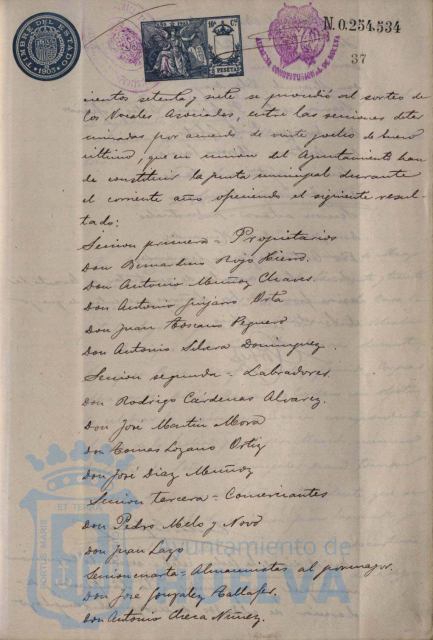 TIMBRE DEL ESTADO
1903
N. 0.254.534
37
cientos setenta y siete se procedió al sorteo de
los Vocales Asociados, entre las secciones deter
minadas por acuerdo de veinte y ocho de Enero
último, que en union del Ayuntamiento han
de constituir la junta municipal durante
el corriente año ofreciendo el siguiente resul-
tado:
Seccion primera = Propietarios
Don Bernardino Rojo Hierro.
Don Antonio Muñoz Chaves.
Don Antonio Orta
Don Juan Toscano Peguero
Don Antonio Silvera Dominguez.
Seccion segunda = Labradores.
Don Rodrigo Cárdenas Alvarez.
Don José Martin Mora
Don Tomas Lozano Ortiz
Don José Diaz Muñoz
Seccion tercera = Comerciantes
Don Pedro Melo y Novo
Don Juan Lazo
Seccion cuarta = Almacenistas al pormayor.
Don José Gonzalez
Don Antonio Nuñez.
Ayuntamiento de
HUELVA